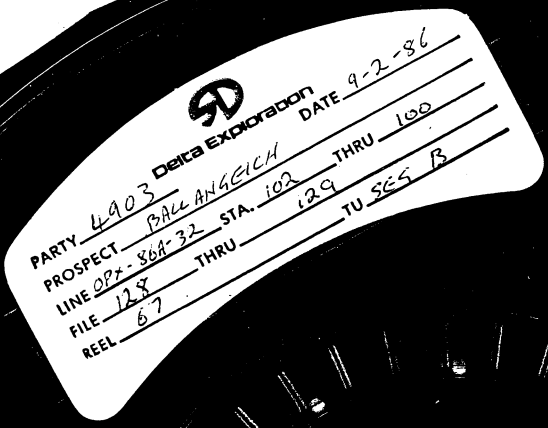 SD
Delta Exploration
PARTY 4903 DATE 9-2-86
PROSPECT BALLANGEICH
LINE OPX-86A-32 STA. 102 THRU 100
FILE 128 THRU 129
REEL 67 TU SEG B